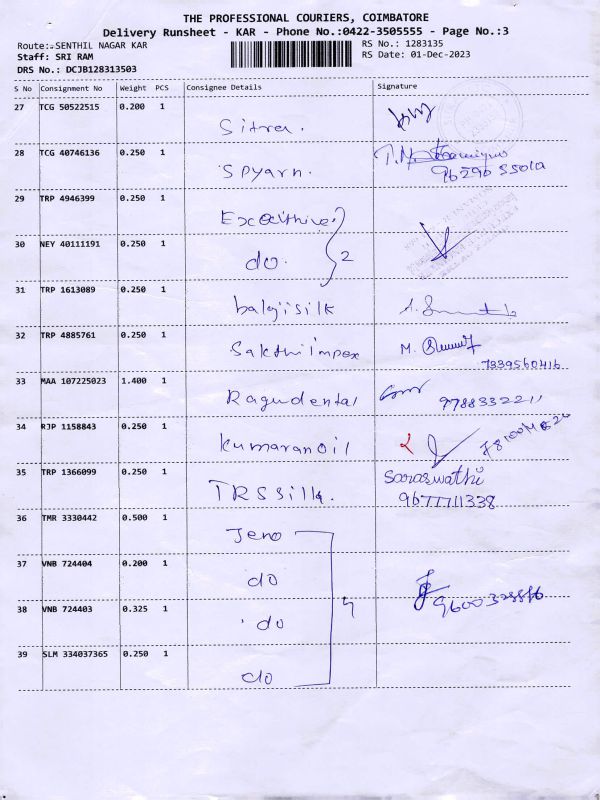 THE PROFESSIONAL COURIERS, COIMBATORE
Delivery Runsheet - KAR - Phone No.:0422-3505555 - Page No.:3
Route: SENTHIL NAGAR KAR
RS No.: 1283135
Staff: SRI RAM
RS Date: 01-Dec-2023
DRS No.: DCJB128313503
S No Consignment No Weight PCS Consignee Details Signature
27 TCG 50522515 0.200 1
Sitra.
28 TCG 40746136 0.250 1
Spyarn.
29 TRP 4946399 0.250 1
30 NEY 40111191 0.250 1
do. 2
31 TRP 1613089 0.250 1
balajisilk
32 TRP 4885761 0.250 1
Sakthi impex M.
7339560416
33 MAA 107225023 1.400 1
Ragudental 9788332211
34 RJP 1158843 0.250 1
kumaranoil
35 TRP 1366099 0.250 1
Saraswathi
TRSsilk. 9677711338
36 TMR 3330442 0.500 1
Jeno
37 VNB 724404 0.200 1
do
38 VNB 724403 0.325 1
do 4
39 SLM 334037365 0.250 1
do